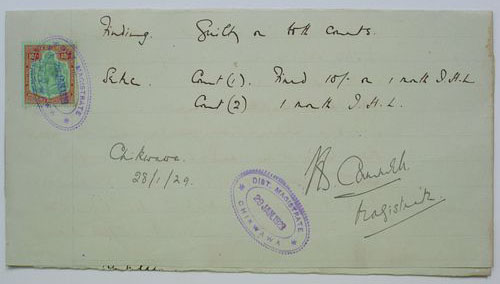 Finding. Guilty on both counts.
Sentence. Count (1). Fined 10/- or 1 month I.H.L.
Count (2) 1 month I.H.L.
Chikwawa.
28/1/29.
Magistrate
DIST. MAGISTRATE
29 JAN 1929
CHIKWAWA
MAGISTRATE